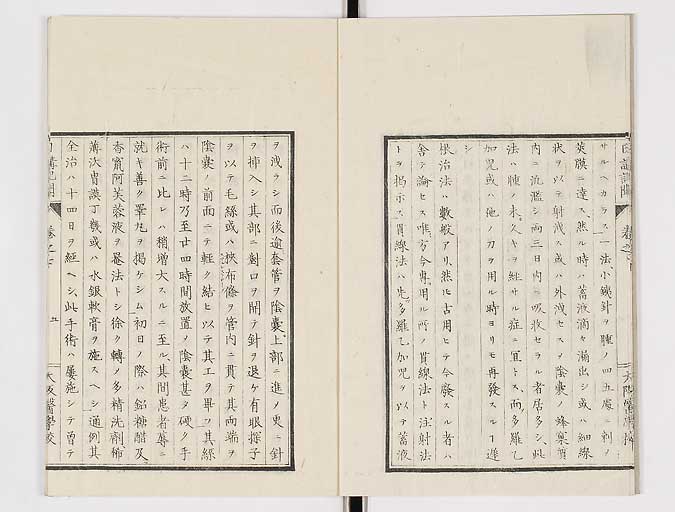 サルヘカラス一法小鍼針ヲ腫ノ四五處ニ刺ノ
莢膜ニ達ス然ル時ハ蓄液滴々漏出シ或ハ細線
状ヲ以テ射洩ス或ハ外洩セスノ陰嚢ノ蜂窠質
内ニ汎濫シ両三日内ニ吸收セラル者居多シ此
法ハ腫ノ永久ヲ經サル症ニ宜トス而多羅乙
加兒或ハ他ノ刀ヲ用ル時ヨリモ再發スルー遅
シ
根治法ハ數般アリ然ル古用ヒテ今廢スル者ハ
舎テ論セス唯方今専用ル所ノ貫線法ト注射法
トヲ掲示ス貫線法ハ先多羅乙加兒ヲ以テ蓄液
ヲ洩ラシ而後逾套管ヲ陰嚢上部ニ進ノ史ニ針
ヲ挿入シ其部ニ對口ヲ開テ針ヲ退ケ有眼探子
ヲ以テ毛絲或ハ狹布條ヲ管内ニ貫テ其両端ヲ
陰嚢ノ前面ニテ輕ク結ヒ以テ其工ヲ畢ヲ其經
ハ十二時乃至廿四時間放置ノ陰嚢甚タ硬ク手
術前ニ比レハ稍増大スルニ至ル其間患者蓐ニ
就キ善ク睾丸ヲ掲ケシム初日ノ際ハ鉛糖醋及
香竄阿芙蓉液ヲ罨法トシ徐ク轉ノ多精洗劑稀
薄沃胄謨丁幾或ハ水銀軟膏ヲ施スヘシ通例其
全治ハ十四日ヲ經ヘシ此手術ハ屢施シテ曽テ
卷之七
五
大阪醫學校